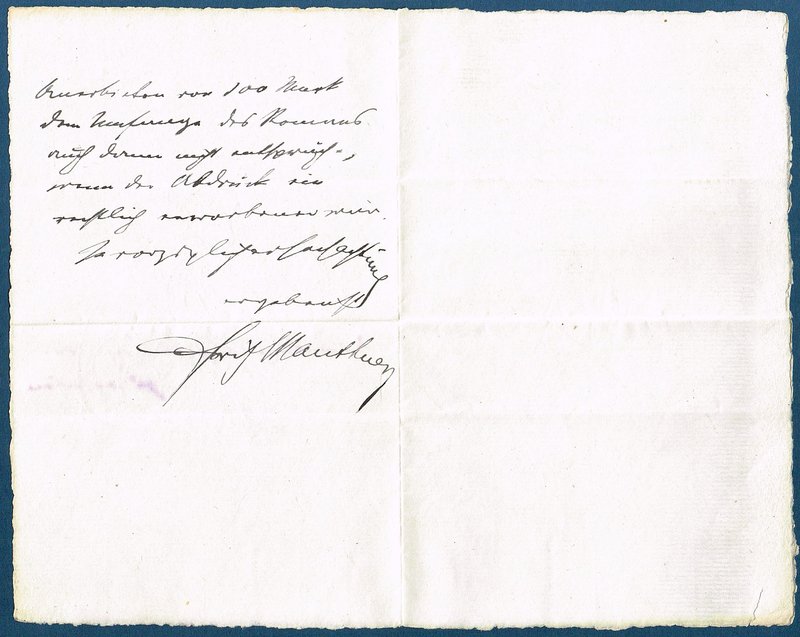 Anerbieten von 100 Mark
dem Umfange des Romans
auch dann nicht entspräche,
wenn der Abdruck ein
rechtlich erworbener wäre.
In vorzüglicher Hochachtung
ergebenst
Fritz Mauthner